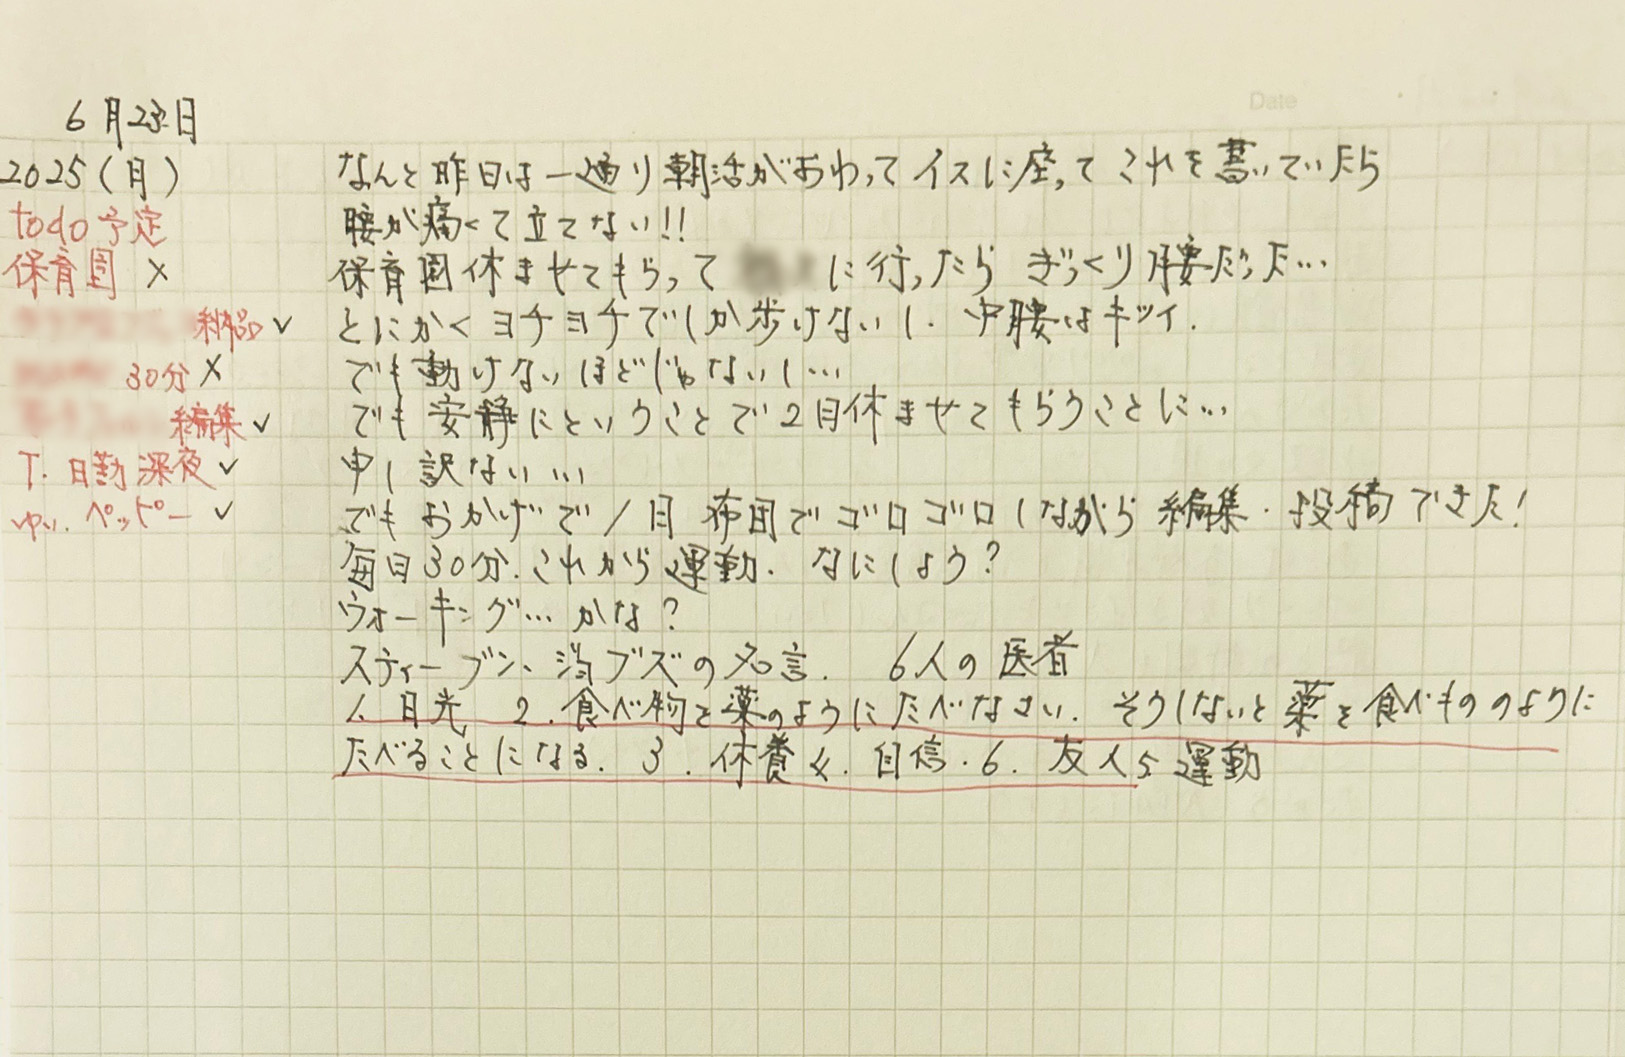 Date
6月23日
2025(月)
todo予定
保育園 ×
納品 ✓
30分 ×
編集 ✓
T. 日勤深夜 ✓
ゆい. ペッピー ✓
なんと昨日は一通り朝活がおわってイスに座ってこれを書いていたら
腰が痛くて立てない!!
保育園休ませてもらって に行ったら ぎっくり腰だった…
とにかくヨチヨチでしか歩けないし. 中腰はキツイ.
でも動けないほどじゃないし…
でも安静にということで2日休ませてもらうことに…
申し訳ない…
でもおかげで1日布団でゴロゴロしながら編集・投稿できた!
毎日30分.これから運動. なにしよう?
ウォーキング…かな?
スティーブン、ジョブズの名言. 6人の医者
1. 日光 2. 食べ物を薬のようにたべなさい. そうしないと薬を食べもののように
たべることになる. 3. 休養 4. 自信. 6. 友人 5 運動